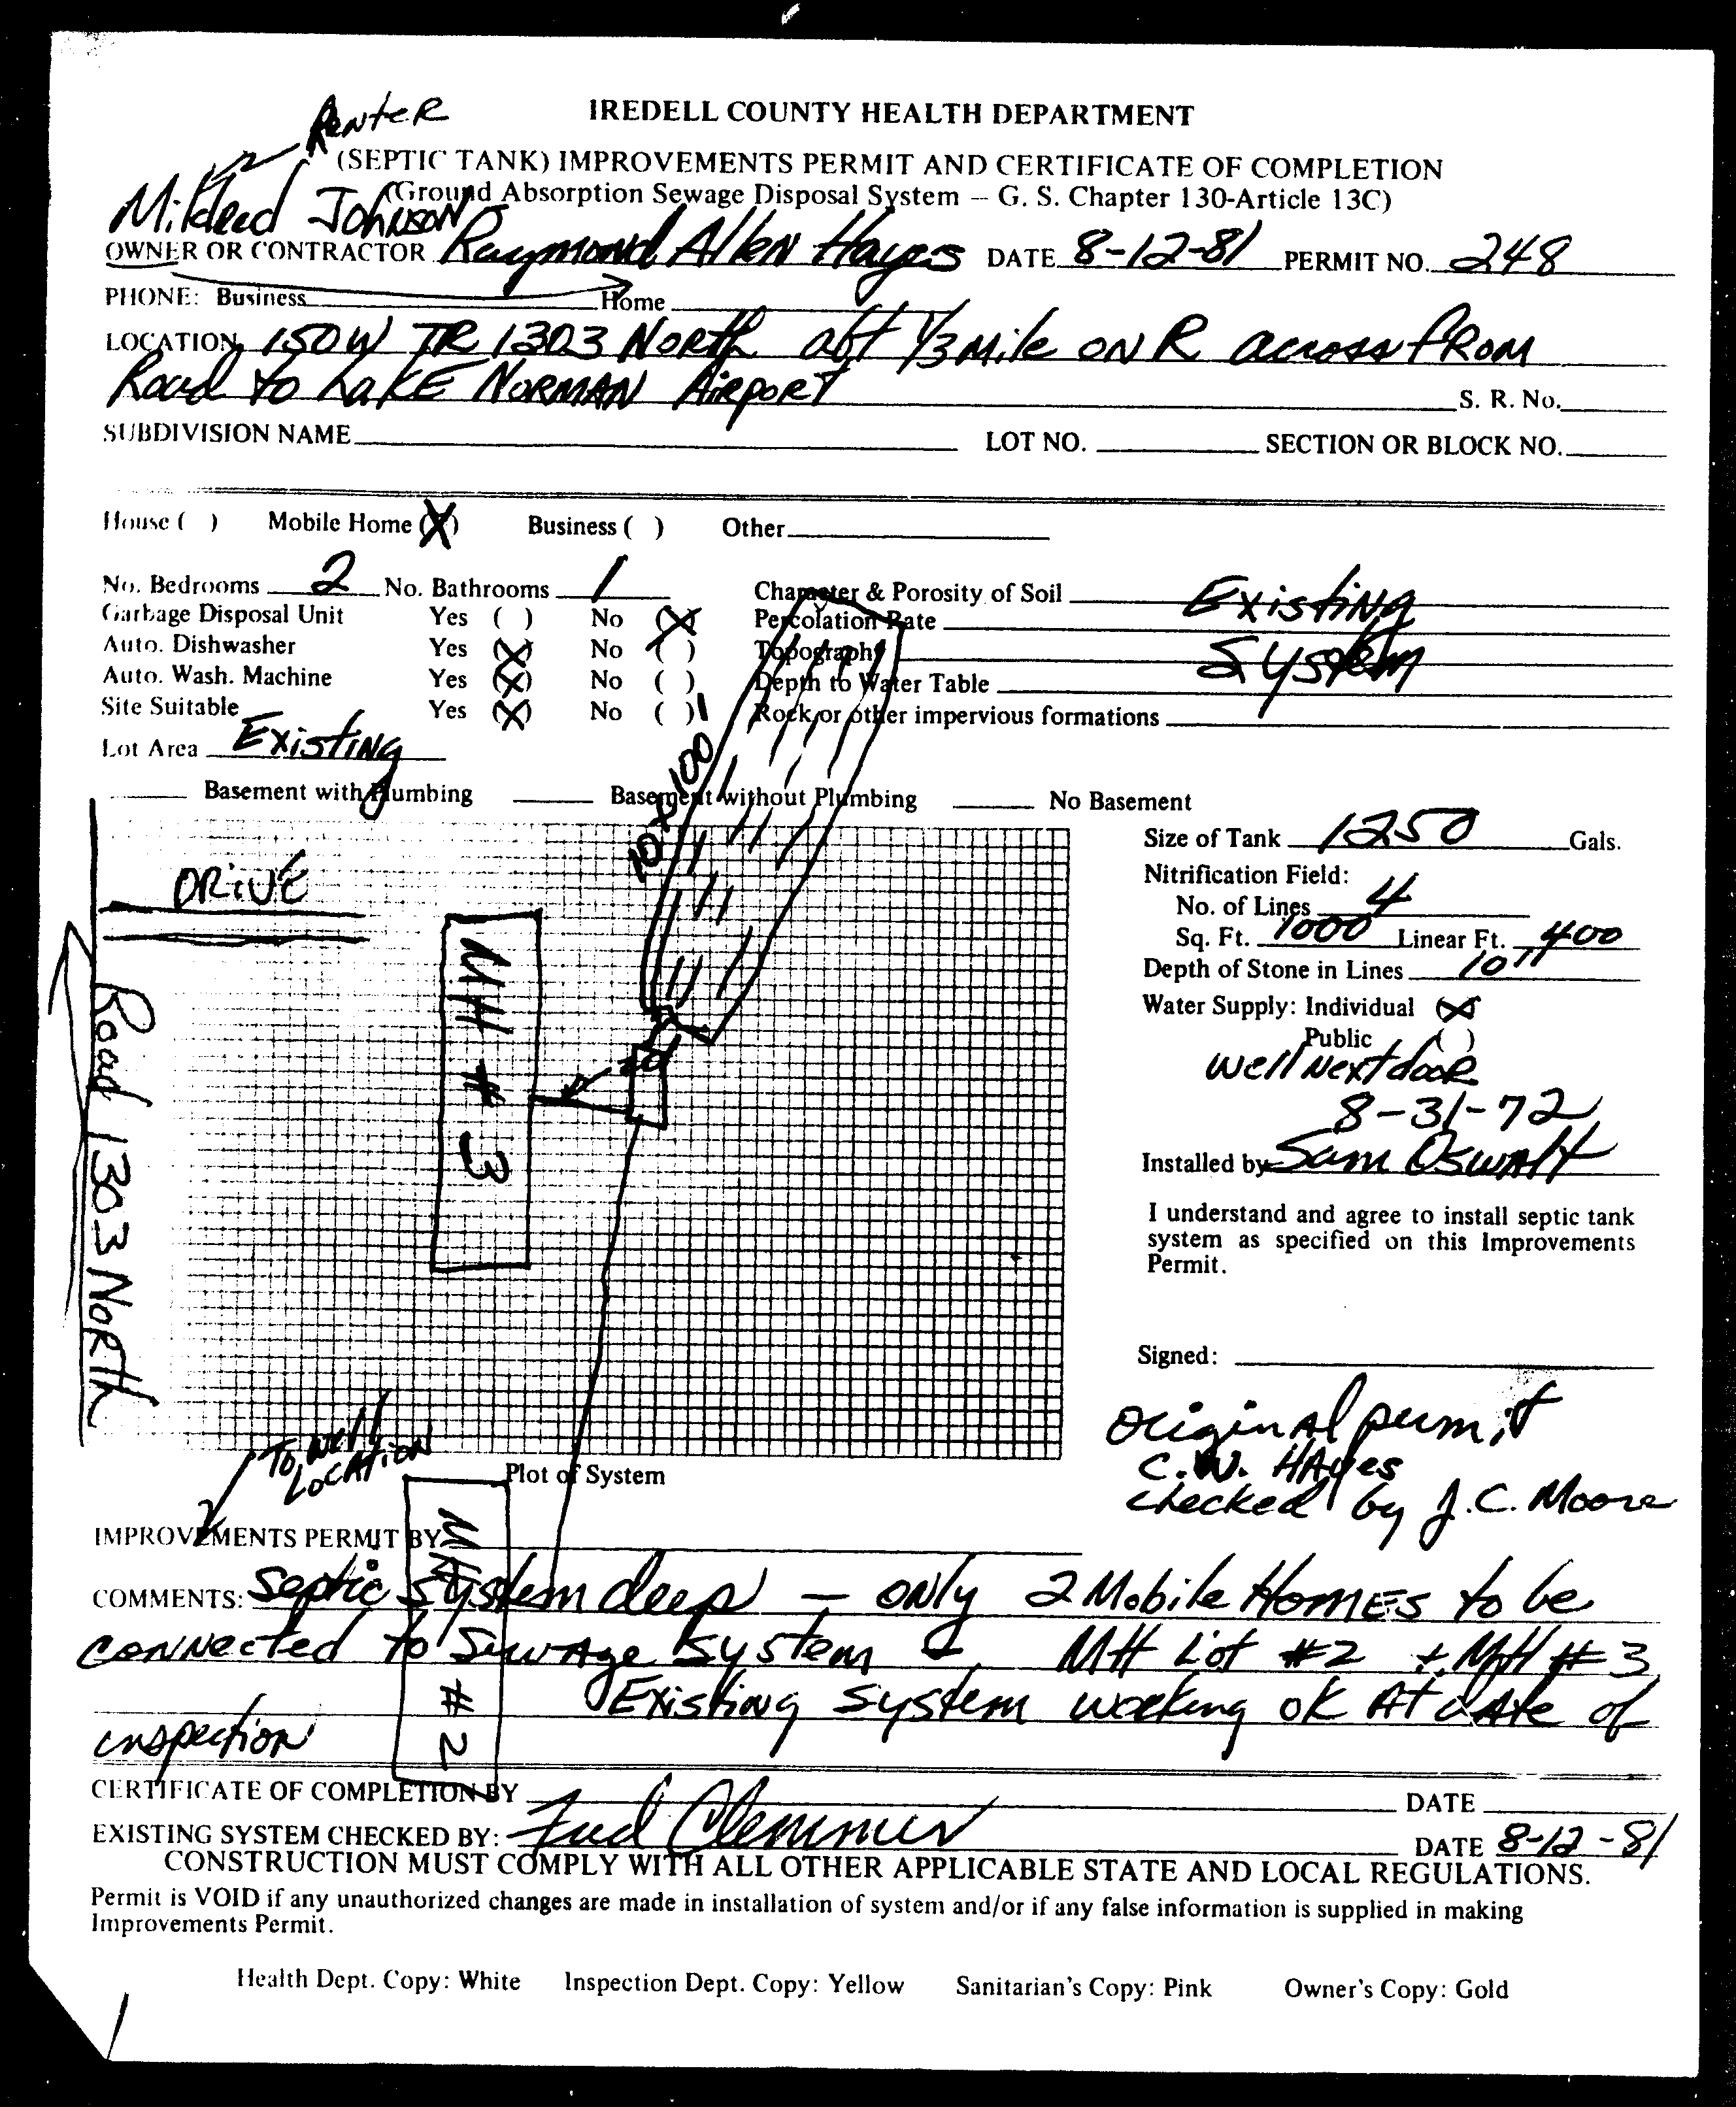 Renter
IREDELL COUNTY HEALTH DEPARTMENT
(SEPTIC TANK) IMPROVEMENTS PERMIT AND CERTIFICATE OF COMPLETION
(Ground Absorption Sewage Disposal System — G. S. Chapter 130-Article 13C)
Mildred Johnson
OWNER OR CONTRACTOR Raymond Allen Hayes DATE 8-12-81 PERMIT NO. 248
PHONE: Business Home
LOCATION 150W TR 1303 North aft 1/3 mile on R across from
Road to Lake Norman Airport S. R. No.
SUBDIVISION NAME LOT NO. SECTION OR BLOCK NO.
House ( ) Mobile Home (X) Business ( ) Other
No. Bedrooms 2 No. Bathrooms 1 Character & Porosity of Soil Existing
Garbage Disposal Unit Yes ( ) No (X) Percolation Rate
Auto. Dishwasher Yes (X) No ( ) Topography System
Auto. Wash. Machine Yes (X) No ( ) Depth to Water Table
Site Suitable Yes (X) No ( ) Rock or other impervious formations
Lot Area Existing
10 x 100
Basement with Plumbing Basement without Plumbing No Basement
DRIVE
MH # 3
Road 1303 North
Size of Tank 1250 Gals.
Nitrification Field:
No. of Lines 4
Sq. Ft. 1000 Linear Ft. 400
Depth of Stone in Lines 10"
Water Supply: Individual (X)
Public ( )
well next door
8-31-72
Installed by Sam Oswalt
I understand and agree to install septic tank
system as specified on this Improvements
Permit.
Signed:
To well
Location
Plot of System
original permit
C.W. HAyes
checked by J.C. Moore
IMPROVEMENTS PERMIT BY
MH # 2
COMMENTS: Septic system deep — only 2 Mobile Homes to be
connected to Sewage System MH Lot #2 + MH #3
Existing system working ok At date of
inspection
CERTIFICATE OF COMPLETION BY DATE
EXISTING SYSTEM CHECKED BY: Fred Clemmer DATE 8-12-81
CONSTRUCTION MUST COMPLY WITH ALL OTHER APPLICABLE STATE AND LOCAL REGULATIONS.
Permit is VOID if any unauthorized changes are made in installation of system and/or if any false information is supplied in making
Improvements Permit.
Health Dept. Copy: White Inspection Dept. Copy: Yellow Sanitarian's Copy: Pink Owner's Copy: Gold